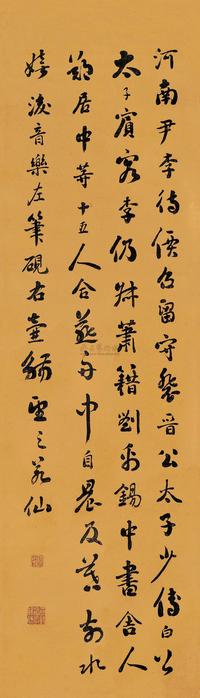 河南尹李待價及留守裴晉公太子少傅白公
太子賓客李仍叔蕭籍劉禹錫中書舍人
鄭居中等十五人合燕舟中自晨及暮前水
嬉後音樂左筆硯右壺觴望之若仙